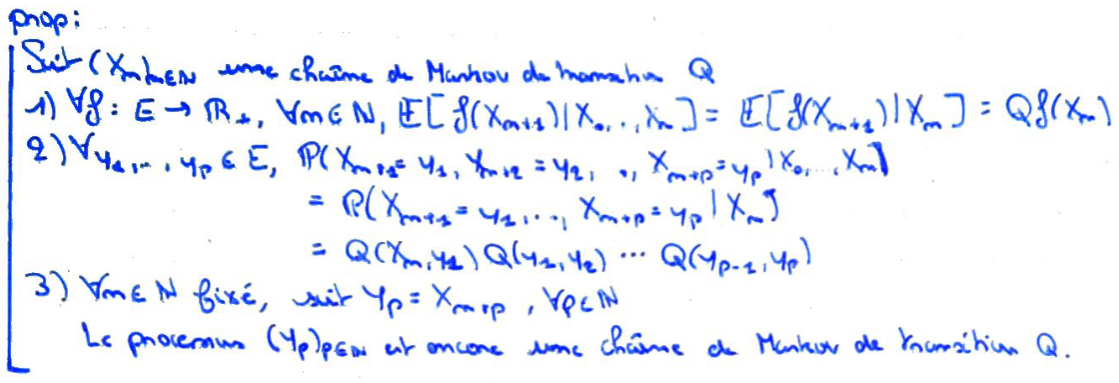 prop:
Soit (Xₙ)ₙ∈ℕ une chaîne de Markov de transition Q
1) ∀f : E → ℝ₊, ∀n ∈ ℕ, 𝔼[f(Xₙ₊₁)|X₀,..,Xₙ] = 𝔼[f(Xₙ₊₁)|Xₙ] = Qf(Xₙ)
2) ∀y₁,..., yₚ ∈ E, ℙ(Xₙ₊₁ = y₁, Xₙ₊₂ = y₂, .., Xₙ₊ₚ = yₚ | X₀,..., Xₙ]
= ℙ(Xₙ₊₁ = y₁,..., Xₙ₊ₚ = yₚ | Xₙ]
= Q(Xₙ, y₁) Q(y₁, y₂) ... Q(yₚ₋₁, yₚ)
3) ∀n ∈ ℕ fixé, soit Yₚ = Xₙ₊ₚ, ∀p ∈ ℕ
Le processus (Yₚ)ₚ∈ℕ est encore une chaîne de Markov de transition Q.